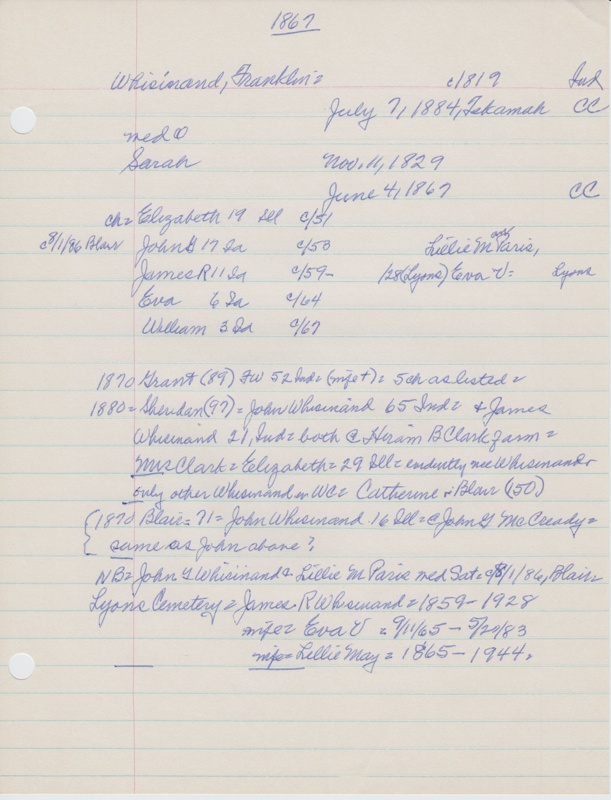 1867
Whisinand, Franklin = c1819 Ind
July 7, 1884, Tekamah CC
med @
Sarah Nov. 11, 1829
June 4, 1867 CC
ch = Elizabeth 19 Ill c/51
c8/1/86 Blair John G 17 Ia c/53 Lillie M Paris,
James R 11 Ia c/59 - /28 (Lyons) Eva V = Lyons
Eva 6 Ia c/64
William 3 Ia c/67
1870 Grant (89) FW 52 Ind = (wife +) = 5 ch as listed =
1880 = Sheridan (97) = John Whisinand 65 Ind = & James
Whisinand 21, Ind = both @ Hiram B Clark farm =
Mrs Clark = Elizabeth = 29 Ill = evidently nee Whisinand &
only other Whisinand in WC = Catherine in Blair (50)
{1870 Blair = 71 = John Whisinand 16 Ill = @ John G McCready =
same as John above?
NB = John G Whisinand & Lillie M Paris med Sat = c8/1/86, Blair =
Lyons Cemetery = James R Whisinand = 1859 - 1928
wife = Eva V = 9/11/65 - 5/20/83
wife = Lillie May = 1865 - 1944.